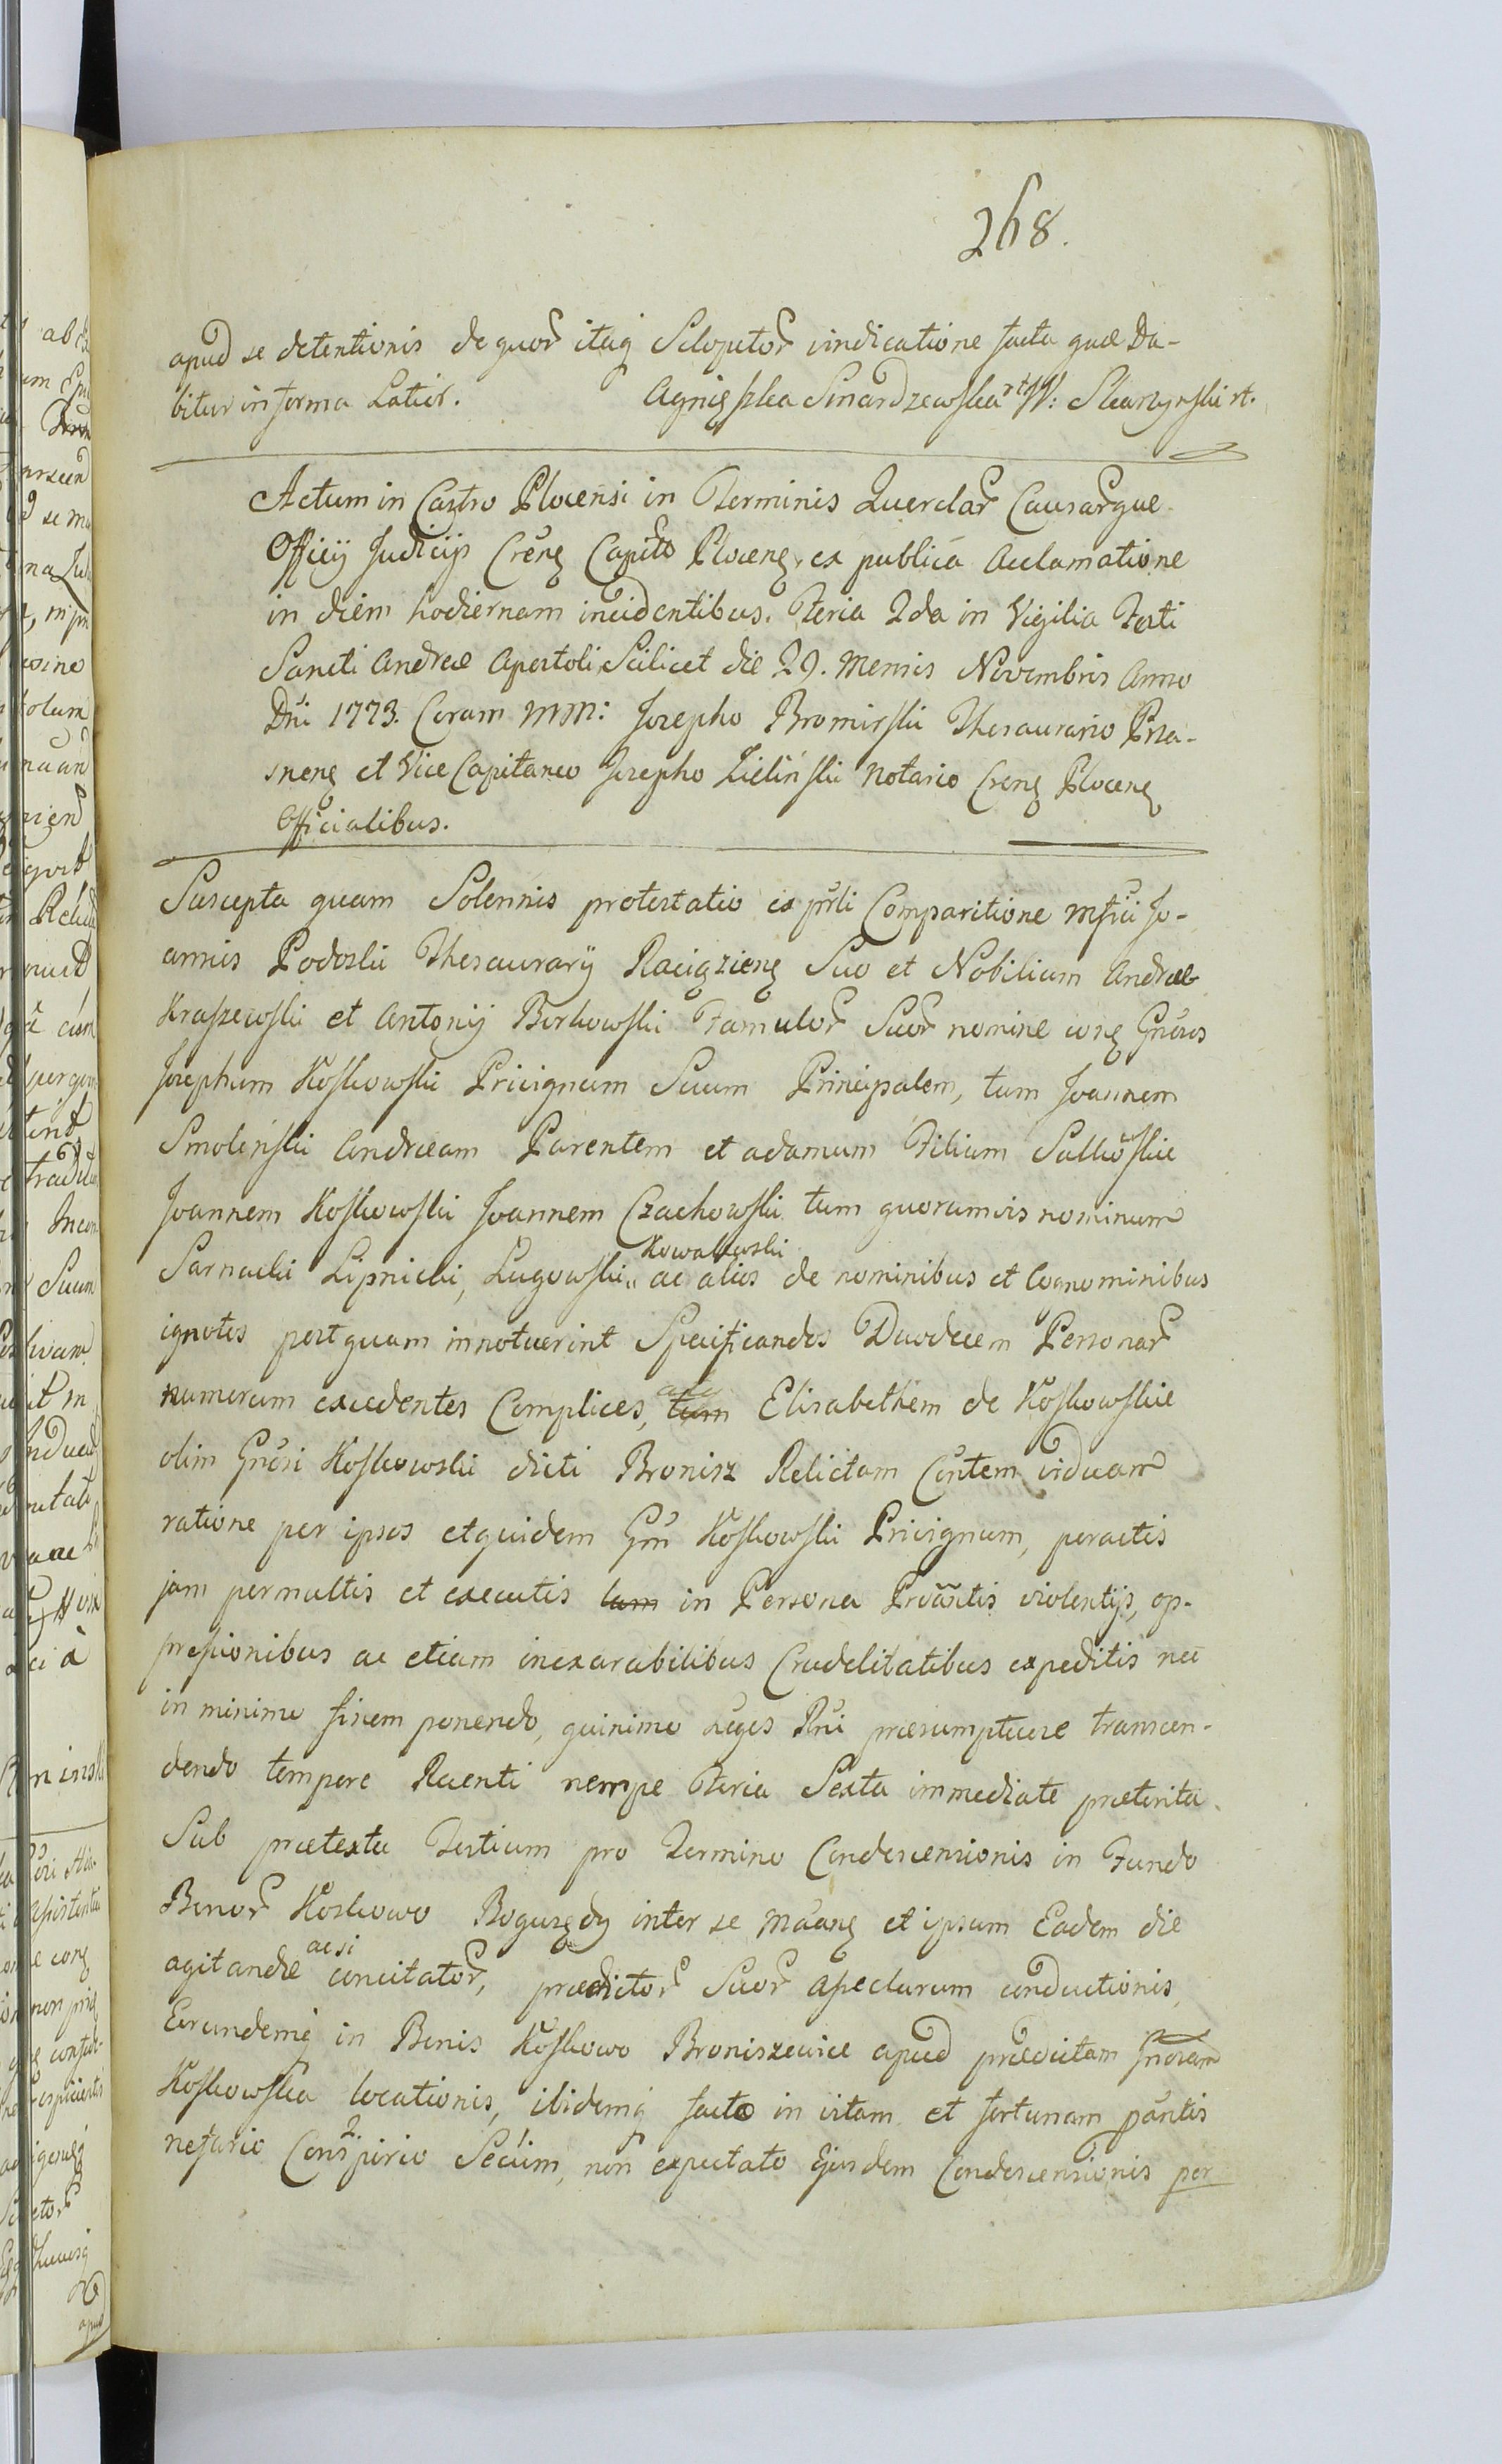 268.
apud se detentionis de quor itaq Sclopetor vindicatione facta quae Da-
bitur in forma Latior. Agnieszka Sinardzewska rt W: Skarzynski rt.
Actum in Castro Plocensi in Terminis Querelar Causarque
Officij Judicijs Crenq Capito Plocenq ex publica Acclamatione
in diem hodiernam incidentibus. Feria 2da in Vigilia Festi
Sancti Andreae Apostoli Scilicet die 29. Mensis Novembris Anno
Dni 1773. Coram MM: Josepho Bromirski Thesaurario Prza-
snenq et Vice Capitaneo Josepho Zielinski Notario Crenq Plocenq
Officialibus.
Suscepta quam Solennis protestatio ex prsti Comparitione Mfici Jo-
annis Podoski Thesaurarij Raciązienq Suo et Nobilium Andreae
Kraszewski et Antonij Borkowski Famulor Suor nomine conq Gnosos
Josephum Koskowski Privignum Suum Principalem, tum Joannem
Smolinski Andream Parentem et Adamum Filium Sulkowskie
Joannem Koskowski Joannem Czachowski tum quorumvis nominum
Sarnacki Lipnicki, Lugowski Kowalewski ac alios de nominibus et Cognominibus
ignotos postquam innotuerint Specificandos Duodecem Personar
numerum excedentes Complices, tum Elisabethem de Koskowskie
olim Gnosi Koskowski dicti Bronisz Relictam Contem viduam
ratione per ipsos et quidem Gm Koskowski Privignum, peractis
jam permultis et executis tam in Persona Proantis violentijs, op-
pressionibus ac etiam inexarabilibus Crudelitatibus expeditis nec
in minimo finem ponendo, quinimo Leges Rni praesumptuose transcen-
dendo tempore Recenti nempe Feria Sexta immediate praeterita
Sub praetextu Testium pro Termino Condescensionis in Fundo
Bonor Koskowo Boguszędy inter se Maanq et ipsum Eadem die
agitandae ac si concitator, praedictor Suor Asseclarum conductionis
Eorundemq in Bonis Koskowo Broniszewice apud praedictam Gnosam
Koskowska locationis, ibidemq facto in vitam et fortunam pantis
nefario Conspirio Secum, non expectato Ejusdem Condescensionis per